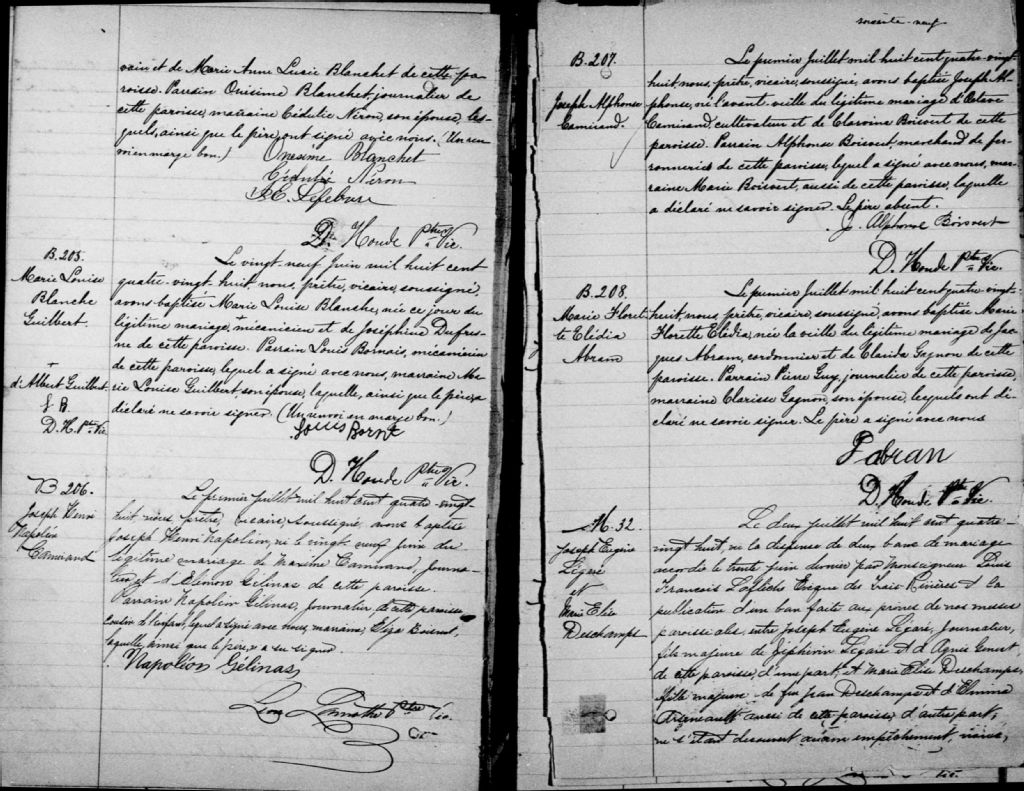 vain et de Marie Anne Lucie Blanchet de cette pa-
roisse. Parrain Onisime Blanchet, journalier de
cette paroisse, marraine Cédulie Néron, son épouse, les-
quels, ainsi que le père, ont signé avec nous. (Un ren-
voi en marge bon.)
Onesime Blanchet
Cédulié Néron
Lefebvre
D. Houde Ptre Vic.
B. 205.
Marie Louise
Blanche
Guilbert.
+
d'Albert Guilbert
L. B.
D. H. Ptre Vic
Le vingt-neuf Juin mil huit cent
quatre-vingt-huit nous, prêtre, vicaire, soussigné,
avons baptisé Marie Louise Blanche, née ce jour du
légitime mariage + mécanicien et de Joséphine Dufres-
ne de cette paroisse. Parrain Louis Bornais, mécanicien
de cette paroisse, lequel a signé avec nous, marraine Ma-
rie Louise Guilbert, son épouse, laquelle, ainsi que le père, a
déclaré ne savoir signer. (Un renvoi en marge bon.)
Louis Borne
D. Houde Ptre Vic.
B 206.
Joseph Henri
Napoléon
Camirand
Le premier juillet mil huit cent quatre-vingt-
huit, nous prêtre, vicaire, soussigné, avons baptisé
Joseph Henri Napoléon, né le vingt neuf juin du
légitime mariage de Maxime Camirand, journa-
lier, et d' Gélinas de cette paroisse.
Parrain Napoléon Gélinas, journalier de cette paroisse
cousin de l'enfant, lequel a signé avec nous, marraine, Eliza Boisvert,
laquelle ainsi que le père, n'a su signer.
Napoléon Gélinas
Ptre
soixante-neuf
B. 207.
Joseph Alphonse
Camirand.
Le premier Juillet mil huit cent quatre-vingt-
huit, nous, prêtre, vicaire, soussigné, avons baptisé Joseph Al-
phonse, né l'avant-veille du légitime mariage d'Octave
Camirand, cultivateur et de Boisvert de cette
paroisse. Parrain Alphonse Boisvert, marchand de fer-
ronneries de cette paroisse, lequel a signé avec nous, mar-
raine Marie Boisvert, aussi de cette paroisse, laquelle
a déclaré ne savoir signer. Le père absent.
J. Alphonse Boisvert
D. Houde Ptre Vic.
B. 208.
Marie Floret-
te Elédia
Abram
Le premier Juillet mil huit cent quatre-vingt-
huit, nous, prêtre, vicaire, soussigné, avons baptisé Marie
Florette Elédia, née la veille du légitime mariage de Jac-
ques Abram, cordonnier et de Clarida Gagnon de cette
paroisse. Parrain Pierre Guy, journalier de cette paroisse,
marraine Clarisse Gagnon, son épouse, lesquels ont dé-
claré ne savoir signer. Le père a signé avec nous
J abran
D. Houde Ptre Vic.
M. 32
Joseph Eugène
Légaré
et
Marie Elise
Deschamps
Le deux juillet mil huit cent quatre-
vingt huit, vu la dispense de deux bans de mariage
accordée le trente juin dernier par Monseigneur Louis
François Laflèche Evêque des Trois Rivières et la
publication d'un ban faite au prône de nos messes
paroissiales, entre Joseph Eugène Légaré, journalier,
fils majeur de Zéphirin Légaré et d'Agnès
de cette paroisse, d'une part, et Marie Elise Deschamps,
fille majeure de feu Jean Deschamps et d'
Arseneault aussi de cette paroisse, d'autre part,
ne s'étant découvert aucun empêchement, nous,